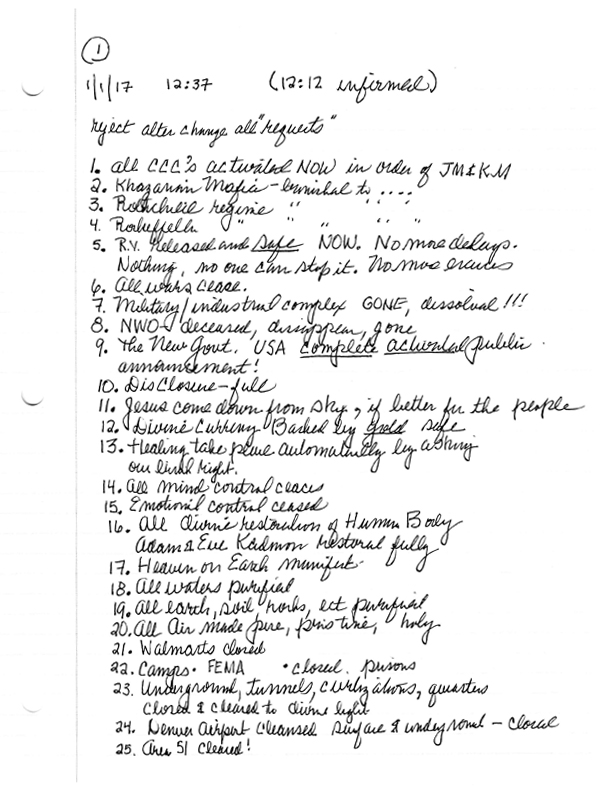 1
1/1/17 12:37 (12:12 informed)
reject alter change all "requests"
1. all CCC's activated NOW in order of JM & KM
2. Khazarian Mafia - terminal to ....
3. Rothchild regime " " " "
4. Rockefella " " " "
5. R.V. Released and safe NOW. No more delays.
Nothing, no one can stop it. No more excuses
6. All wars cease.
7. Military/industrial complex GONE, dissolved!!!
8. NWO - deceased, dissappear, gone
9. The New Govt. USA complete activated public
announcement!
10. DisClosure - full
11. Jesus come down from sky, if better for the people
12. Divine Currency Backed by gold safe
13. Healing take place automatically by asking
our birth right.
14. All mind control ceases
15. Emotional control ceased
16. All divine restoration of Human Body
Adam & Eve Kadmon restored fully
17. Heaven on Earth manifest.
18. All waters purified
19. All earth, soil, rocks, ect purified
20. All Air made pure, pristine, holy
21. Walmarts closed
22. Camps • FEMA • closed. prisons
23. Underground, tunnels, civilizations, quarters
closed & cleared to divine light
24. Denver Airport Cleansed surface & underground - closed
25. Area 51 cleared!